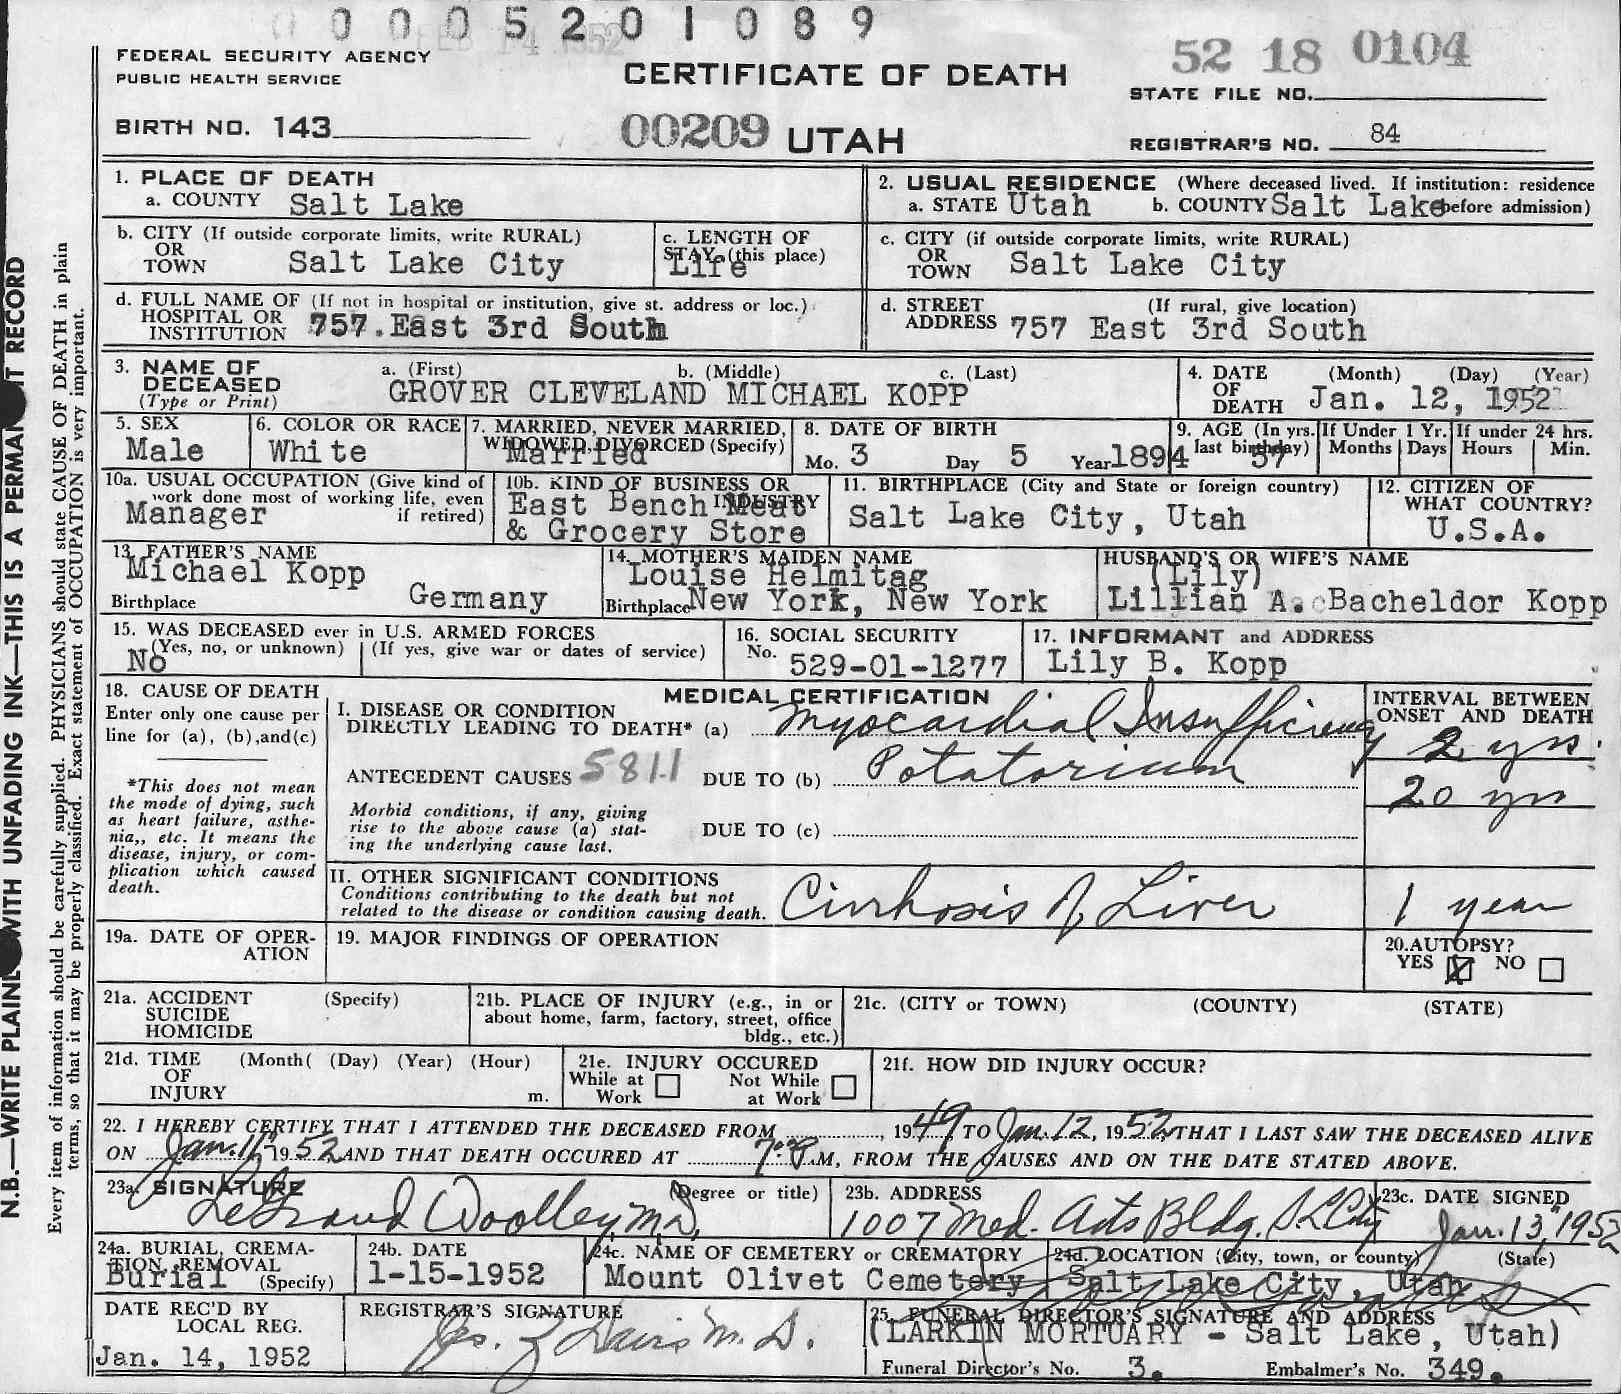 0 0 0 5 2 0 1 0 8 9
FEDERAL SECURITY AGENCY
PUBLIC HEALTH SERVICE
CERTIFICATE OF DEATH
52 18 0104
STATE FILE NO.
BIRTH NO. 143
00209 UTAH
REGISTRAR'S NO. 84
1. PLACE OF DEATH
a. COUNTY Salt Lake
2. USUAL RESIDENCE (Where deceased lived. If institution: residence
a. STATE Utah b. COUNTY Salt Lake before admission)
b. CITY (If outside corporate limits, write RURAL)
OR
TOWN Salt Lake City
c. LENGTH OF
STAY (this place)
Life
c. CITY (if outside corporate limits, write RURAL)
OR
TOWN Salt Lake City
d. FULL NAME OF (If not in hospital or institution, give st. address or loc.)
HOSPITAL OR
INSTITUTION 757 East 3rd South
d. STREET (If rural, give location)
ADDRESS 757 East 3rd South
3. NAME OF a. (First) b. (Middle) c. (Last)
DECEASED GROVER CLEVELAND MICHAEL KOPP
(Type or Print)
4. DATE (Month) (Day) (Year)
OF
DEATH Jan. 12, 1952
5. SEX
Male
6. COLOR OR RACE
White
7. MARRIED, NEVER MARRIED,
WIDOWED, DIVORCED (Specify)
Married
8. DATE OF BIRTH
Mo. 3 Day 5 Year 1894
9. AGE (In yrs. last birthday) 57
If Under 1 Yr. Months Days
If under 24 hrs. Hours Min.
10a. USUAL OCCUPATION (Give kind of
work done most of working life, even
if retired)
Manager
10b. KIND OF BUSINESS OR
INDUSTRY
East Bench Meat
& Grocery Store
11. BIRTHPLACE (City and State or foreign country)
Salt Lake City, Utah
12. CITIZEN OF
WHAT COUNTRY?
U.S.A.
13. FATHER'S NAME
Michael Kopp
Birthplace Germany
14. MOTHER'S MAIDEN NAME
Louise Helmitag
Birthplace New York, New York
HUSBAND'S OR WIFE'S NAME
(Lily)
Lillian A. Bacheldor Kopp
15. WAS DECEASED ever in U.S. ARMED FORCES
(Yes, no, or unknown) (If yes, give war or dates of service)
No
16. SOCIAL SECURITY
No. 529-01-1277
17. INFORMANT and ADDRESS
Lily B. Kopp
18. CAUSE OF DEATH
Enter only one cause per
line for (a), (b), and (c)
*This does not mean
the mode of dying, such
as heart failure, asthe-
nia,, etc. It means the
disease, injury, or com-
plication which caused
death.
MEDICAL CERTIFICATION
I. DISEASE OR CONDITION
DIRECTLY LEADING TO DEATH* (a) Myocardial Insufficiency
ANTECEDENT CAUSES 5811 DUE TO (b) Potatorium
Morbid conditions, if any, giving
rise to the above cause (a) stat-
ing the underlying cause last.
DUE TO (c)
INTERVAL BETWEEN
ONSET AND DEATH
2 yrs.
20 yrs
II. OTHER SIGNIFICANT CONDITIONS
Conditions contributing to the death but not
related to the disease or condition causing death.
Cirrhosis of Liver
1 year
19a. DATE OF OPER-
ATION
19. MAJOR FINDINGS OF OPERATION
20. AUTOPSY?
YES X NO
21a. ACCIDENT (Specify)
SUICIDE
HOMICIDE
21b. PLACE OF INJURY (e.g., in or
about home, farm, factory, street, office
bldg., etc.)
21c. (CITY or TOWN) (COUNTY) (STATE)
21d. TIME (Month( (Day) (Year) (Hour)
OF
INJURY m.
21e. INJURY OCCURED
While at Work Not While at Work
21f. HOW DID INJURY OCCUR?
22. I HEREBY CERTIFY THAT I ATTENDED THE DECEASED FROM , 1949, TO Jan. 12, 1952, THAT I LAST SAW THE DECEASED ALIVE
ON Jan. 11, 1952 AND THAT DEATH OCCURED AT 7: P M, FROM THE CAUSES AND ON THE DATE STATED ABOVE.
23a. SIGNATURE (Degree or title)
LeGrand Woolley M.D.
23b. ADDRESS
1007 Med. Arts Bldg. S L City
23c. DATE SIGNED
Jan. 13, 1952
24a. BURIAL, CREMA-
TION, REMOVAL
Burial (Specify)
24b. DATE
1-15-1952
24c. NAME OF CEMETERY or CREMATORY
Mount Olivet Cemetery
24d. LOCATION (City, town, or county) (State)
Salt Lake City, Utah
DATE REC'D BY
LOCAL REG.
Jan. 14, 1952
REGISTRAR'S SIGNATURE
25. FUNERAL DIRECTOR'S SIGNATURE AND ADDRESS
(LARKIN MORTUARY - Salt Lake, Utah)
Funeral Director's No. 3. Embalmer's No. 349.
Every item of information should be carefully supplied. PHYSICIANS should state CAUSE OF DEATH in plain
terms, so that it may be properly classified. Exact statement of OCCUPATION is very important.